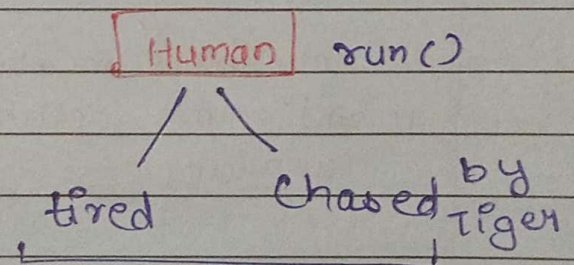 Human run()
tired Chased by Tiger